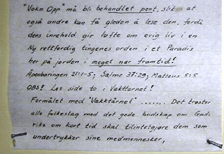 "Vakn Opp" må bli behandlet pent, slik at
også andre kan få gleden å lese den, fordi
dens innehold gir løfte om evig liv i en
Ny rettferdig tingenes orden i et Paradis
her på jorden i meget nær framtid!
Åpenbaringen 21:1-5; Salme 37:29; Matteus 5:5.
OBS! Les side to i Vakttårnet!
Formålet med "Vakttårnet" ...... Det trøster
alle folkeslag med det gode budskap om Guds
rike om kort tid skal tilintetgjøre dem som
undertrykker sine medmennesker,